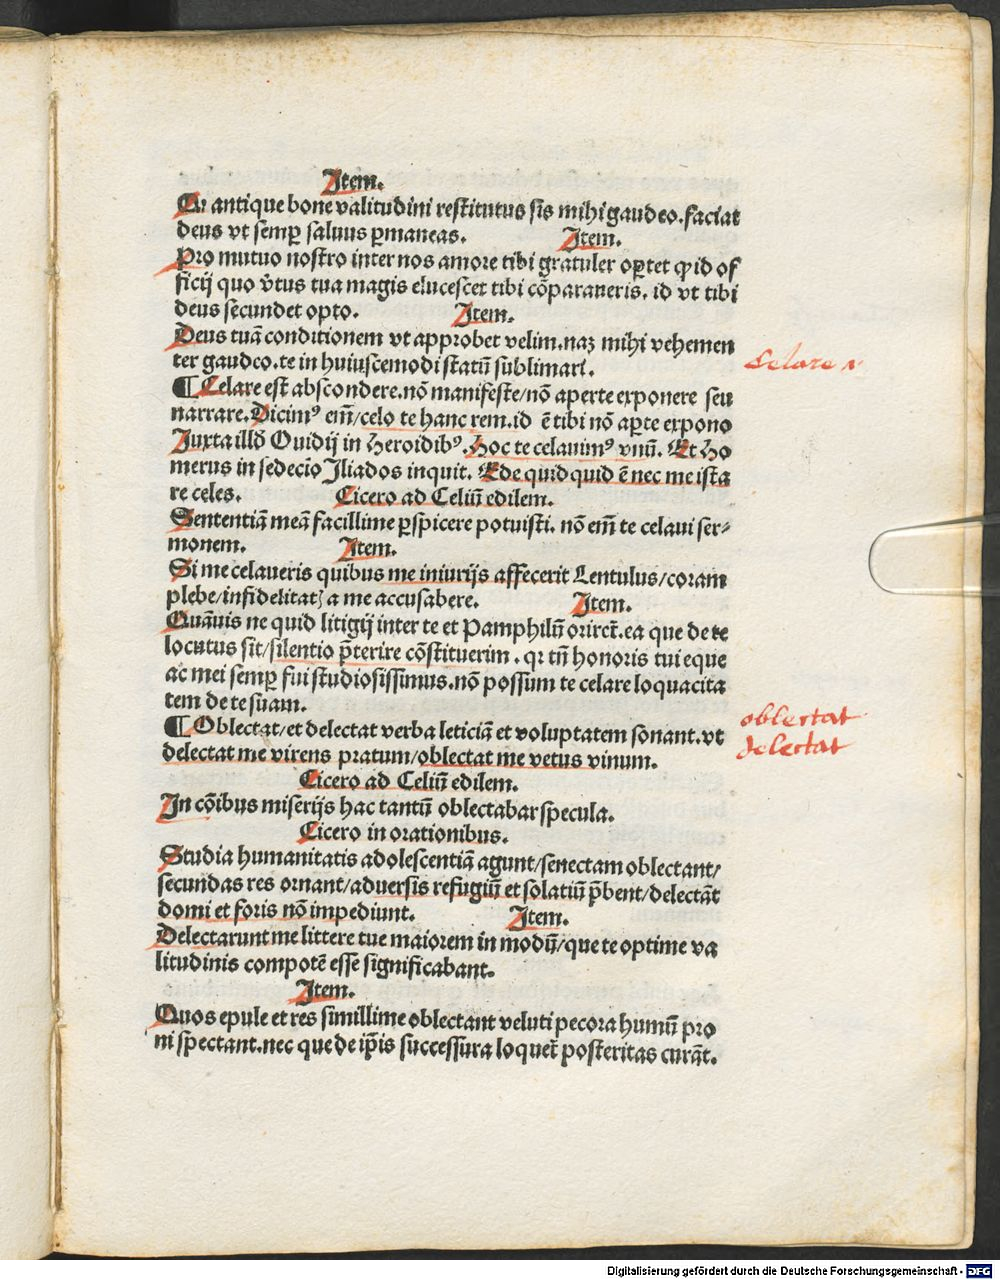 Item.
Cū antique bone valitudini restitutus sis mihi gaudeo. faciat
deus vt semꝑ saluus ꝑmaneas. Item.
Pro mutuo nostro inter nos amore tibi gratuler oꝑtet ꝙ id of
ficij quo v̄tus tua magis elucescet tibi cōparaueris. id vt tibi
deus secundet opto. Item.
Deus tuā conditionem vt approbet velim. naꝫ mihi vehemen
ter gaudeo. te in huiuscemodi statū sublimari.
¶ Celare est abscondere. nō manifeste/nō aperte exponere seu
narrare. Dicimꝰ em̄/celo te hanc rem. id ē tibi nō aꝑte expono
Juxta illd Ouidij in Heroidibꝰ. Hoc te celauimꝰ vnū. Et Ho
merus in sedecio Iliados inquit. Ede quid quid ē nec me ista
re celes. Cicero ad Celiū edilem.
Sententiā meā facillime ꝑspicere potuisti. nō em̄ te celaui ser⸗
monem. Item.
Si me celaueris quibus me iniurijs affecerit Lentulus/coram
plebe/infidelitatꝭ a me accusabere. Item.
Quāuis ne quid litigij inter te et Pamphilū oriret̄. ea que de te
locutus sit/silentio p̄terire cōstituerim. qꝛ tn̄ honoris tui eque
ac mei semꝑ fui studiosissimus. nō possum te celare loquacita
tem de te suam.
¶ Oblectat/et delectat verba leticiā et voluptatem sonant. vt
delectat me virens pratum/oblectat me vetus vinum.
Cicero ad Celiū edilem.
In cōibus miserijs hac tantū oblectabar specula.
Cicero in orationibus.
Studia humanitatis adolescentiā agunt/senectam oblectant/
secundas res ornant/aduersis refugiū et solatiū p̄bent/delectāt
domi et foris nō impediunt. Item.
Delectarunt me littere tue maiorem in modū/que te optime va
litudinis compotē esse significabant.
Item.
Quos epule et res simillime oblectant veluti pecora humū pro
ni spectant. nec que de ip̄is successura loquet̄ posteritas curāt.
Celare
oblectat
delectat
Digitalisierung gefördert durch die Deutsche Forschungsgemeinschaft - DFG